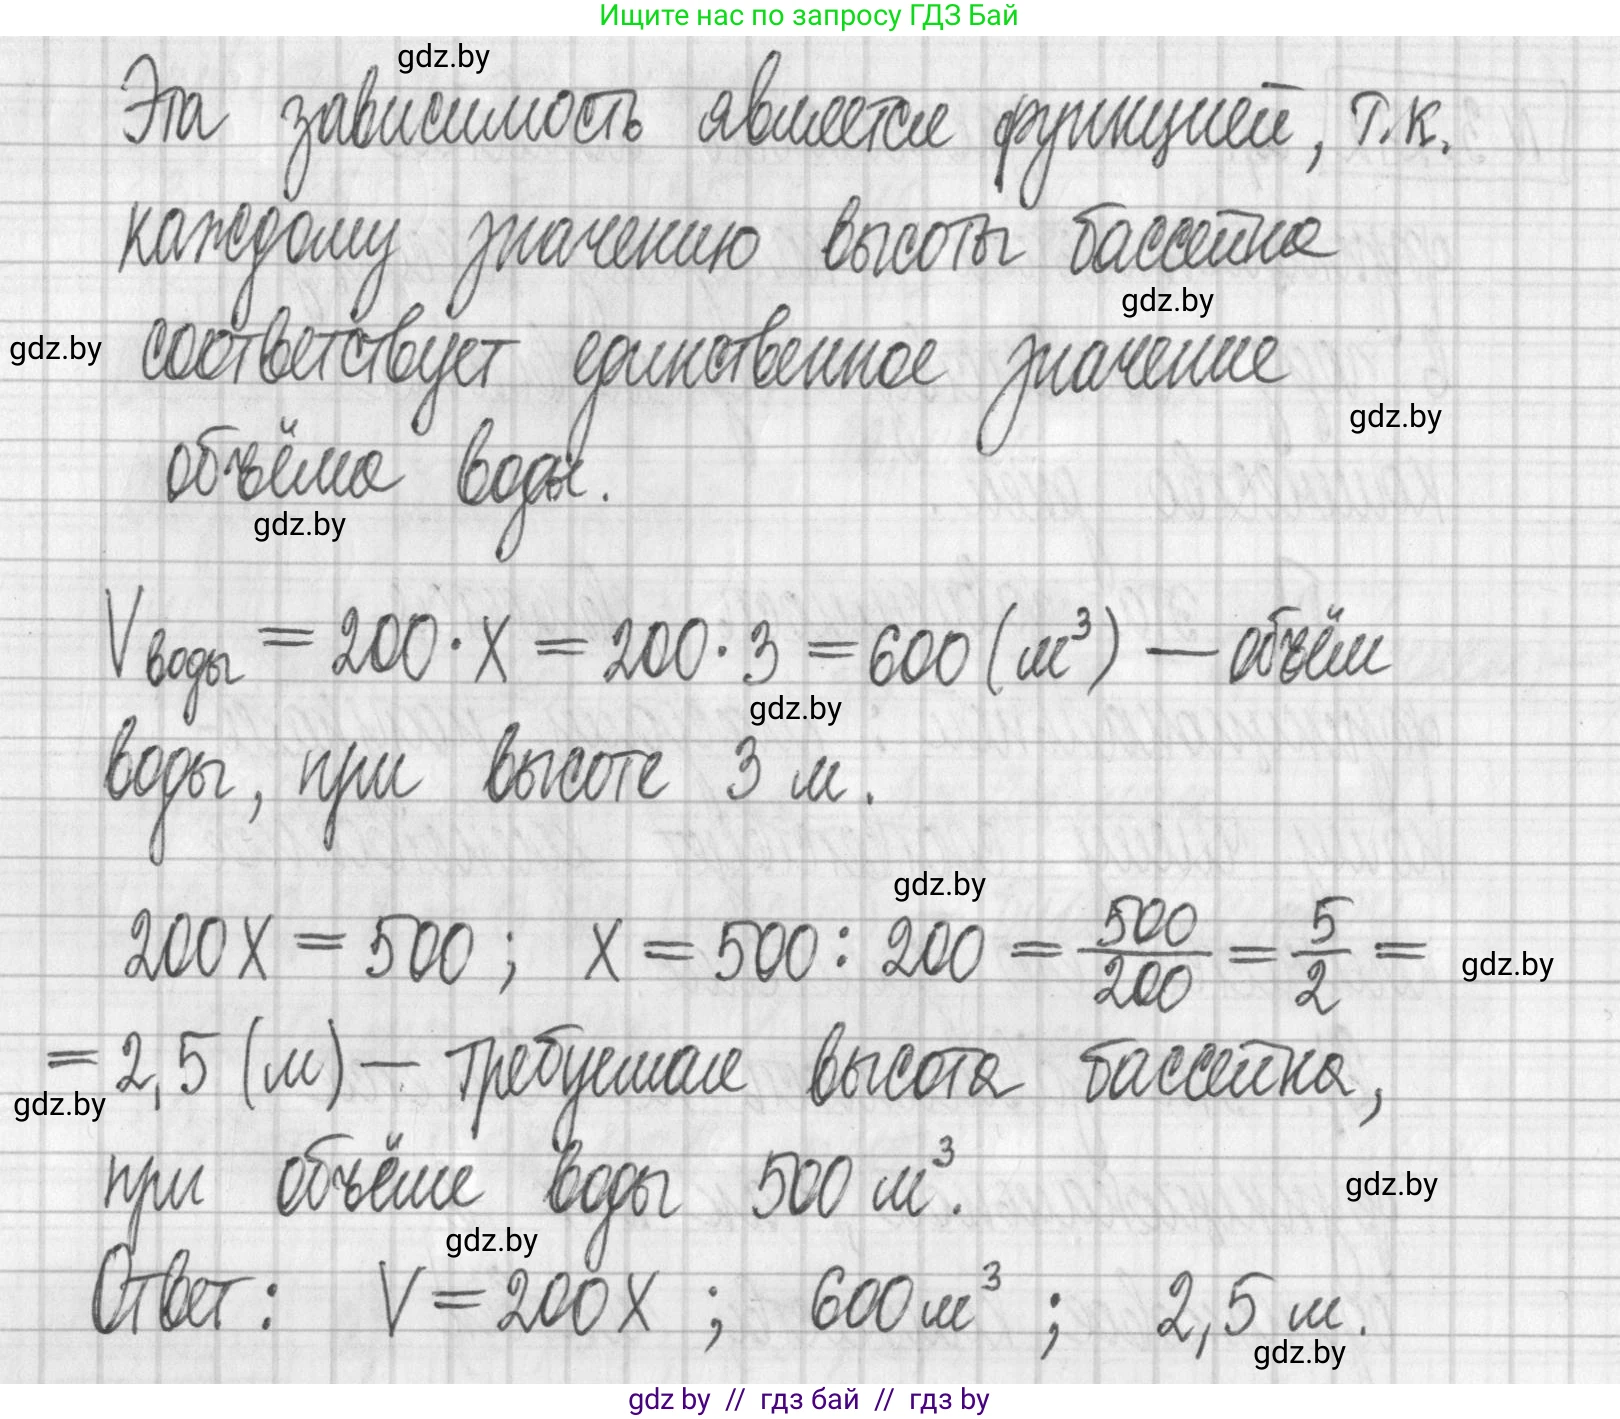 Ищите нас по запросу ГДЗ Бай
gdz.by
Эта зависимость является функцией, т.к.
каждому значению высоты бассейна
gdz.by
gdz.by
соответствует единственное значение
gdz.by
объёма воды.
gdz.by
Vводы = 200·x = 200·3 = 600 (м³) — объём
gdz.by
воды, при высоте 3 м.
gdz.by
200x = 500 ; x = 500 : 200 = 500/200 = 5/2 =
gdz.by
= 2,5 (м) — требуемая высота бассейна,
gdz.by
при объёме воды 500 м³.
gdz.by
gdz.by
Ответ: V = 200x ; 600 м³ ; 2,5 м.
gdz.by
gdz by // гдз бай // гдз by